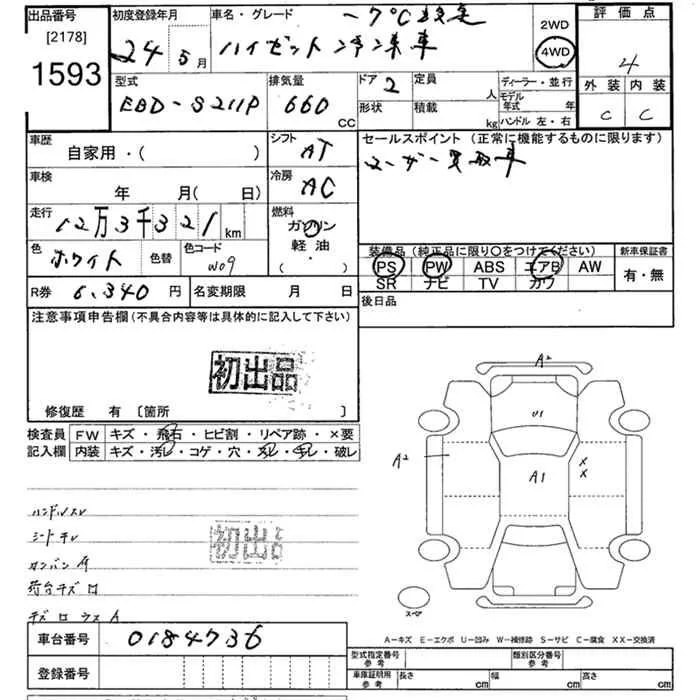 出品番号
[2178]
1593
初度登録年月
24 5月
車名・グレード
-7℃設定
ハイゼット冷凍車
2WD
4WD
評価点
4
外装 内装
C C
型式
EBD-S211P
排気量
660
CC
ドア
2
形状
定員
人
積載
kg
ディーラー・並行
モデル
年式 年
ハンドル 左・右
車歴
自家用・( )
シフト
AT
セールスポイント(正常に機能するものに限ります)
ユーザー買取車
車検
年 月( 日)
冷房
AC
走行
12万3千321
km
燃料
ガソリン
軽油
( ・ )
色
ホワイト
色替
色コード
W09
装備品(純正品に限り〇をつけてください)
PS PW ABS エアB AW
SR ナビ TV カワ
新車保証書
有・無
R券 6,340 円
名変期限 月 日
後日品
注意事項申告欄(不具合内容等は具体的に記入して下さい)
初出品
修復歴 有 〔箇所 〕
検査員
記入欄
FW キズ・飛石・ヒビ割・リペア跡・×要
内装 キズ・汚レ・コゲ・穴・スレ・キレ・破レ
ハンドルスレ
シートキレ
初出品
荷台キズ
A2
U1
A2
A1
X
X
スペア
A-キズ E-エクボ U-凹み W-補修跡 S-サビ C-腐食 XX-交換済
車台番号
0184736
登録番号
型式指定番号
参考
類別区分番号
参考
車庫証明用
参考
長さ cm
幅 cm
高さ cm